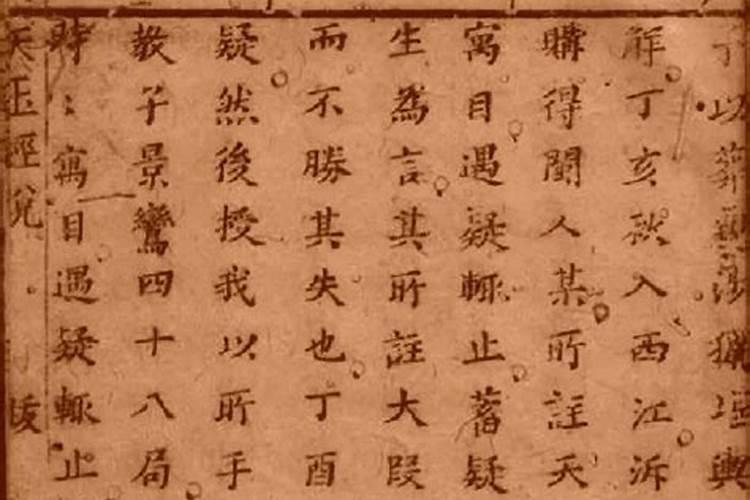 以葬親涉獵堪輿
解丁亥秋入西江泝
購得閩人某所註天
寓目遇疑輒止蓄疑
生為言其所註大段
而不勝其失也丁酉
疑然後授我以所手
教子景鸞四十八局
時〻寓目遇疑輒止
天玉經說